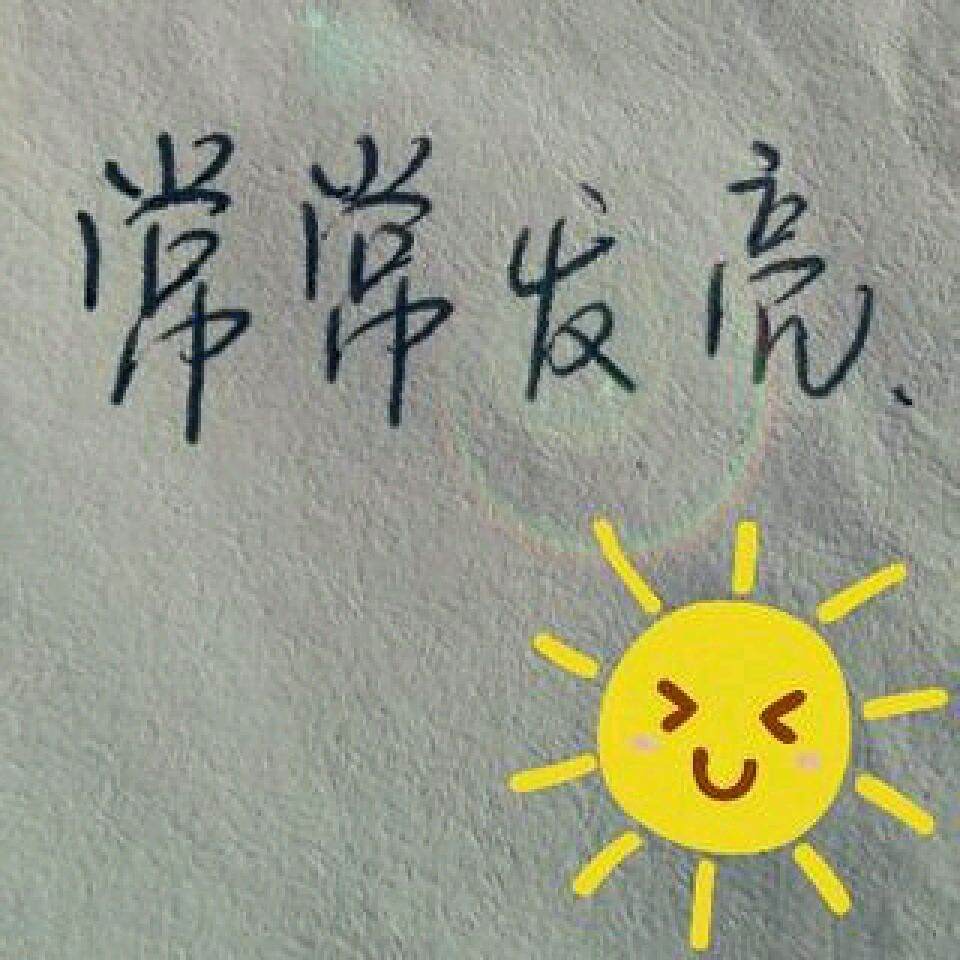 常常发亮、